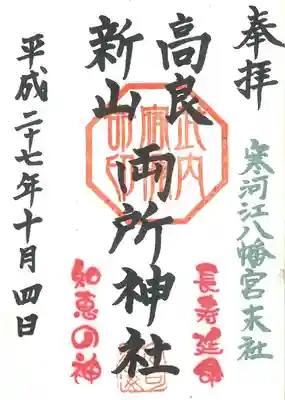 奉拝
寒河江八幡宮末社
高良
新山
両所神社
長寿延命
知恵の神
平成二十七年十月四日